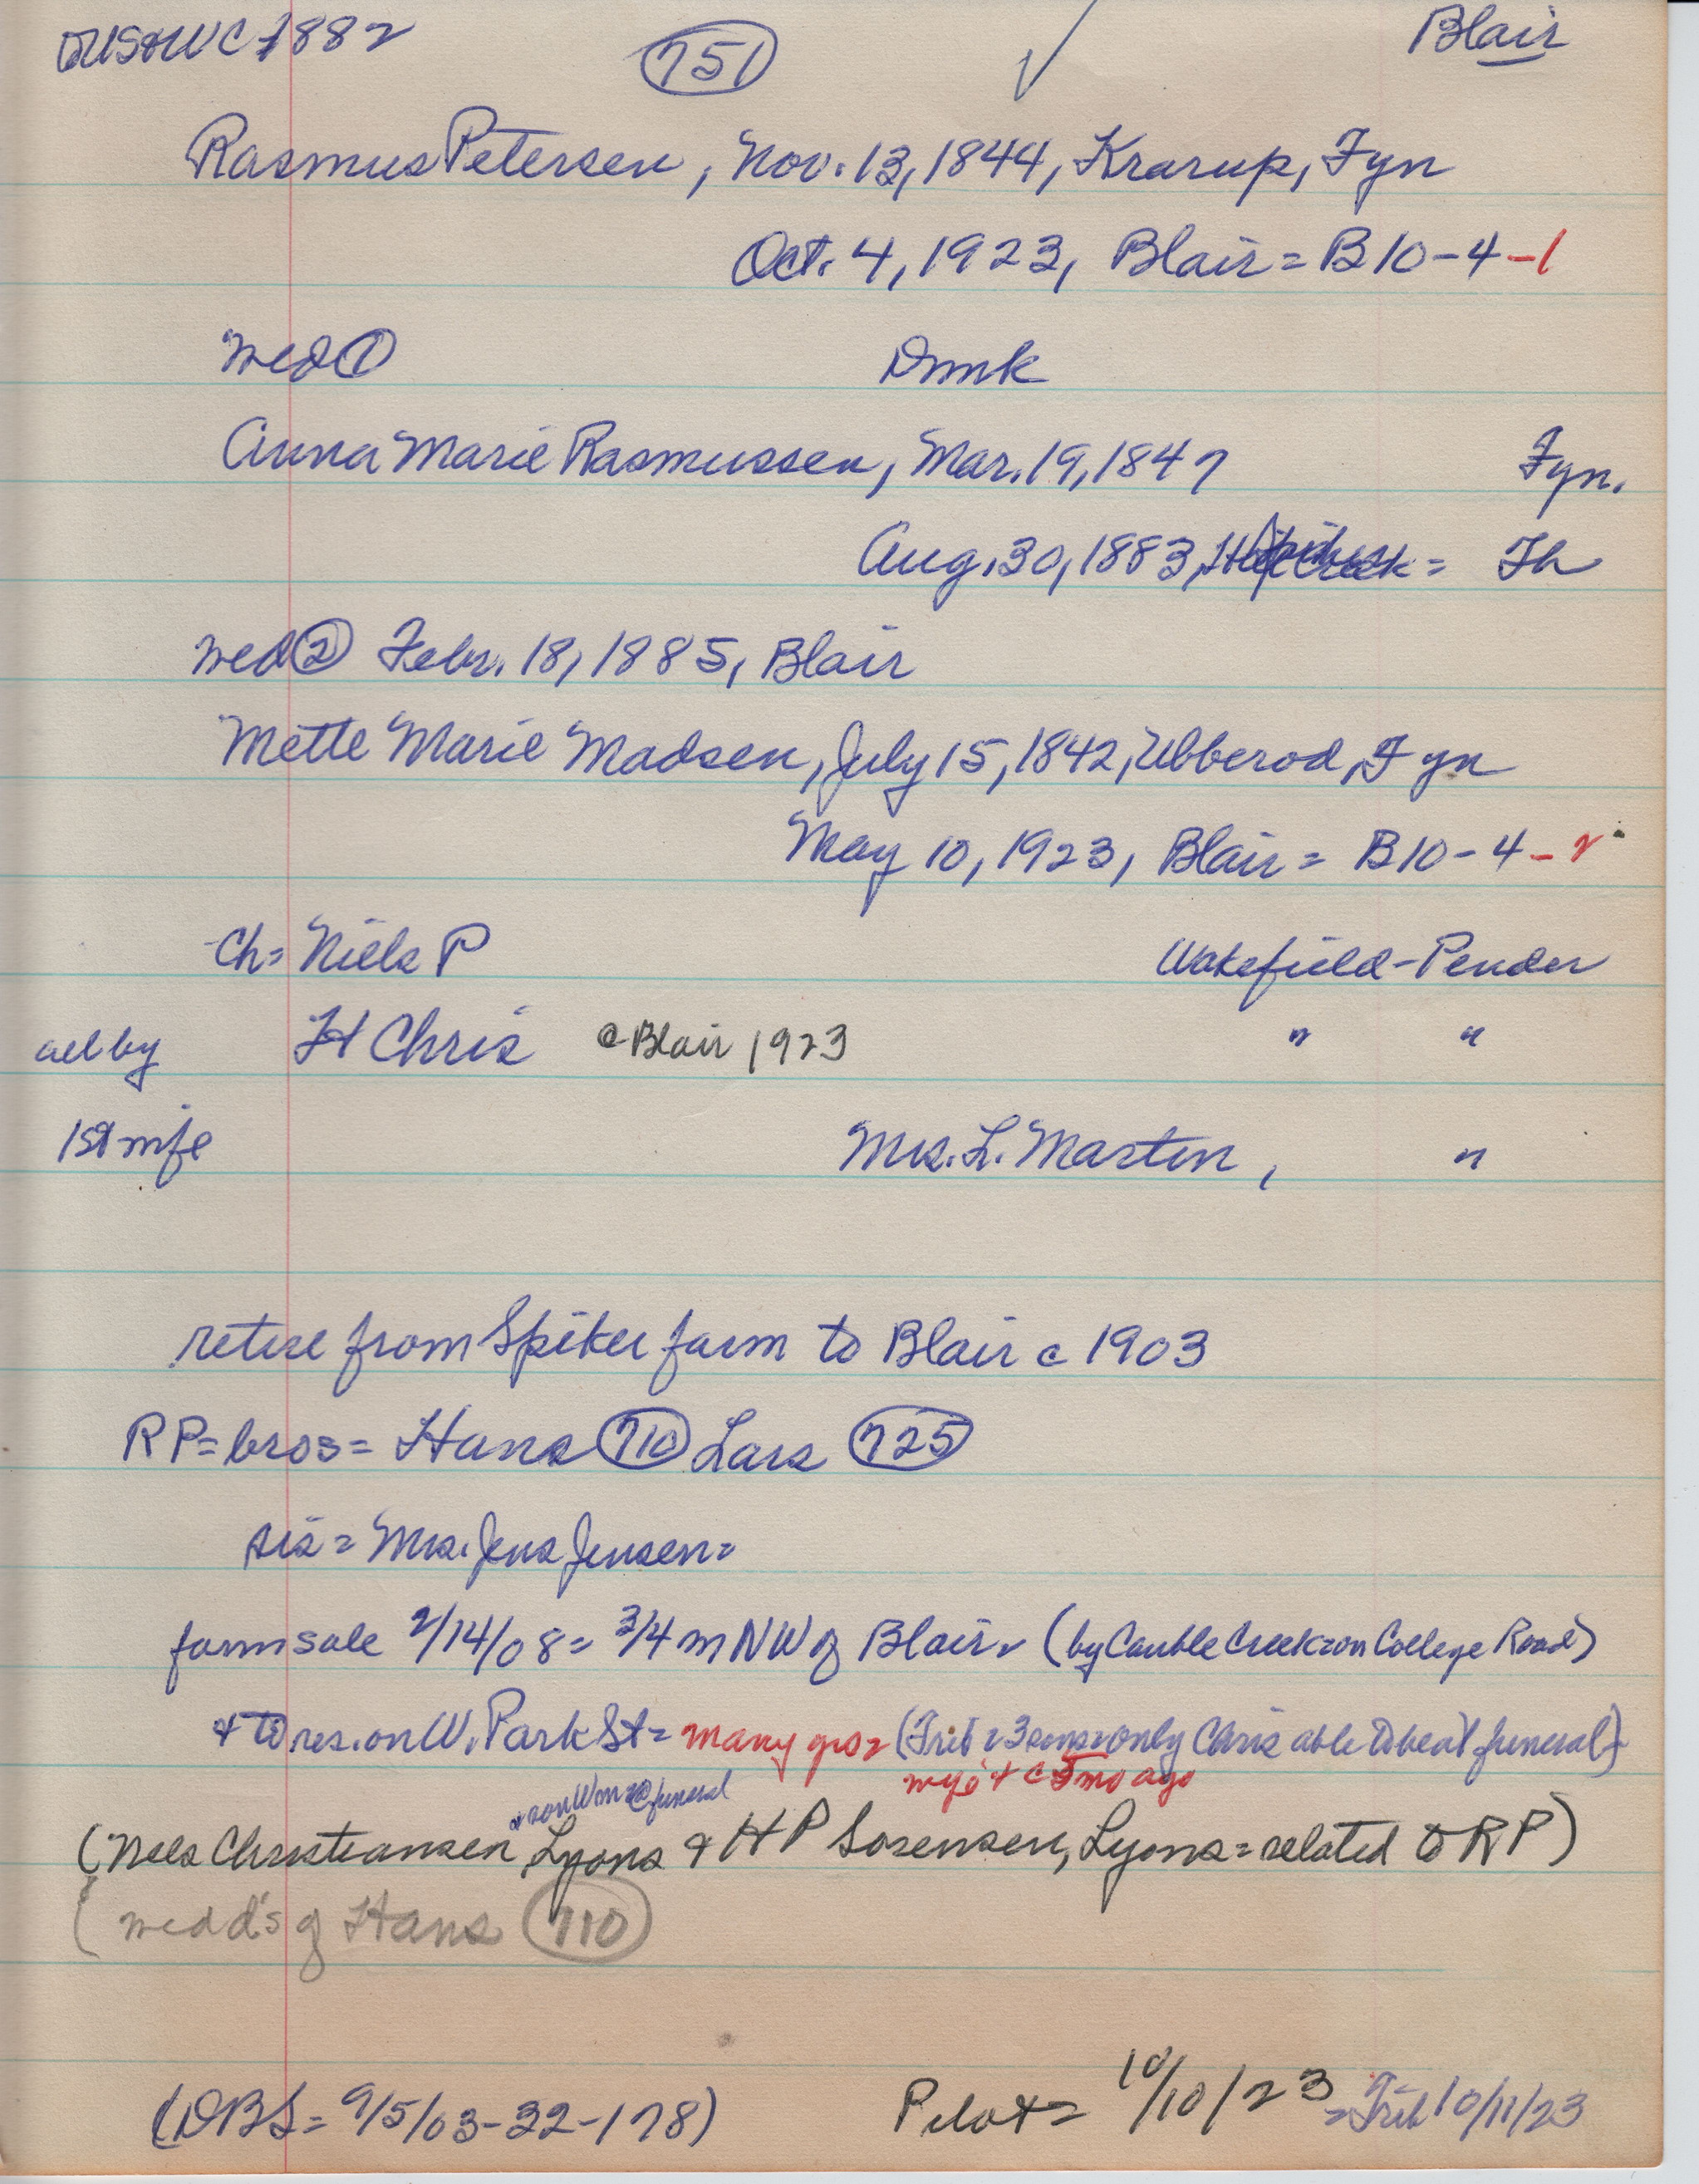 US&WC 1882 (751) ✓ Blair
Rasmus Petersen, Nov. 13, 1844, Krarup, Fyn
Oct. 4, 1923, Blair = B10-4-1
wed ① Dmmk
Anna Marie Rasmussen, Mar. 19, 1847 Fyn.
Aug. 30, 1883, = Th
wed ② Febr. 18, 1885, Blair
Mette Marie Madsen, July 15, 1842, Ubberod, Fyn
May 10, 1923, Blair = B10-4-2
Ch = Niels P Wakefield-Pender
all by H Chris @ Blair 1923 " "
1st wife Mrs. L. Marten, "
retire from Spiker farm to Blair c 1903
RP = bros = Hans (710) Lars (725)
sis = Mrs. Jens Jensen =
farm sale 2/14/08 = 3/4 m NW of Blair (by Cauble Creek = on College Road)
& to res. on W. Park St = many yrs = (Trib = 3 sons = only Chris able to be at funeral)
c 5 mo ago
& son Wm = @ funeral
(Niels Christiansen, Lyons & H P Sorensen, Lyons = related to RP)
(wed d's of Hans (710)
(DBL = 9/5/03-32-178) Pilot = 10/10/23 = Trib 10/11/23